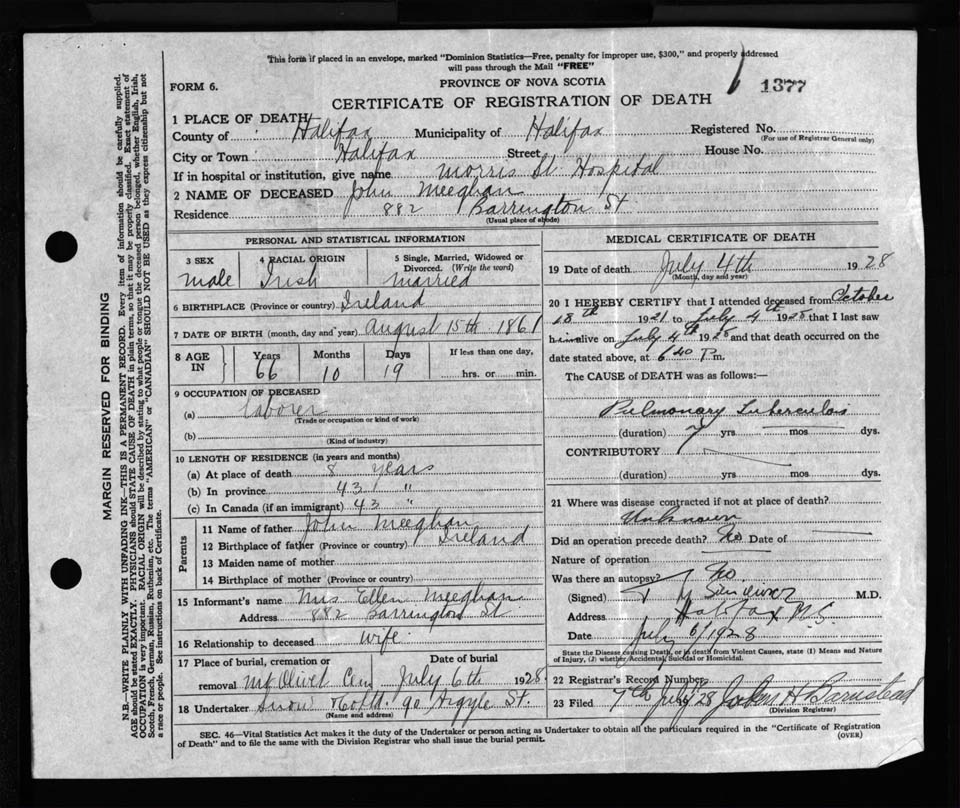 This form if placed in an envelope, marked "Dominion Statistics—Free, penalty for improper use, $300," and properly addressed
will pass through the Mail "FREE"
FORM 6.
PROVINCE OF NOVA SCOTIA
1377
CERTIFICATE OF REGISTRATION OF DEATH
1 PLACE OF DEATH
County of Halifax Municipality of Halifax Registered No.
(For use of Registrar General only)
City or Town Halifax Street House No.
If in hospital or institution, give name Morris St Hospital
2 NAME OF DECEASED John Meeghan
Residence 882 Barrington St
(Usual place of abode)
PERSONAL AND STATISTICAL INFORMATION
3 SEX 4 RACIAL ORIGIN 5 Single, Married, Widowed or
Divorced. (Write the word)
male Irish married
6 BIRTHPLACE (Province or country) Ireland
7 DATE OF BIRTH (month, day and year) August 15th 1861
8 AGE IN Years Months Days If less than one day,
66 10 19 hrs. or min.
9 OCCUPATION OF DECEASED
(a) laborer
(Trade or occupation or kind of work)
(b)
(Kind of industry)
10 LENGTH OF RESIDENCE (in years and months)
(a) At place of death 8 years
(b) In province 43 "
(c) In Canada (if an immigrant) 43 "
Parents
11 Name of father John Meeghan
12 Birthplace of father (Province or country) Ireland
13 Maiden name of mother
14 Birthplace of mother (Province or country)
15 Informant's name Mrs Ellen Meeghan
Address 882 Barrington St
16 Relationship to deceased wife
17 Place of burial, cremation or Date of burial
removal Mt Olivet Cem July 6th 1928
18 Undertaker Snow & Co Ltd. 90 Argyle St.
(Name and address)
MEDICAL CERTIFICATE OF DEATH
19 Date of death July 4th 1928
(Month, day and year)
20 I HEREBY CERTIFY that I attended deceased from October
18th 1921 to July 4th 1928 that I last saw
him alive on July 4th 1928 and that death occurred on the
date stated above, at 6 40 P m.
The CAUSE of DEATH was as follows:—
Pulmonary Tuberculosis
(duration) 7 yrs mos dys.
CONTRIBUTORY
(duration) yrs mos dys.
21 Where was disease contracted if not at place of death?
Unknown
Did an operation precede death? No Date of
Nature of operation
Was there an autopsy? No
(Signed) M.D.
Address Halifax N.S.
Date July 6/1928
State the Disease causing Death, or in death from Violent Causes, state (1) Means and Nature
of Injury, (2) whether Accidental, Suicidal or Homicidal.
22 Registrar's Record Number
23 Filed 7th July 28 John H Barnstead
(Division Registrar)
SEC. 46—Vital Statistics Act makes it the duty of the Undertaker or person acting as Undertaker to obtain all the particulars required in the "Certificate of Registration
of Death" and to file the same with the Division Registrar who shall issue the burial permit.
(OVER)
MARGIN RESERVED FOR BINDING
N.B.—WRITE PLAINLY WITH UNFADING INK—THIS IS A PERMANENT RECORD. Every item of information should be carefully supplied.
AGE should be stated EXACTLY. PHYSICIANS should STATE CAUSE OF DEATH in plain terms, so that it may be properly classified. Exact statement of
OCCUPATION is very important. RACIAL ORIGIN will be described by stating to what people or tongue the deceased person belonged, whether English, Irish,
Scotch, French, German, Russian, Ruthenian, etc. The terms "AMERICAN" or "CANADIAN" SHOULD NOT BE USED as they express citizenship but not
a race or people. See instructions on back of Certificate.